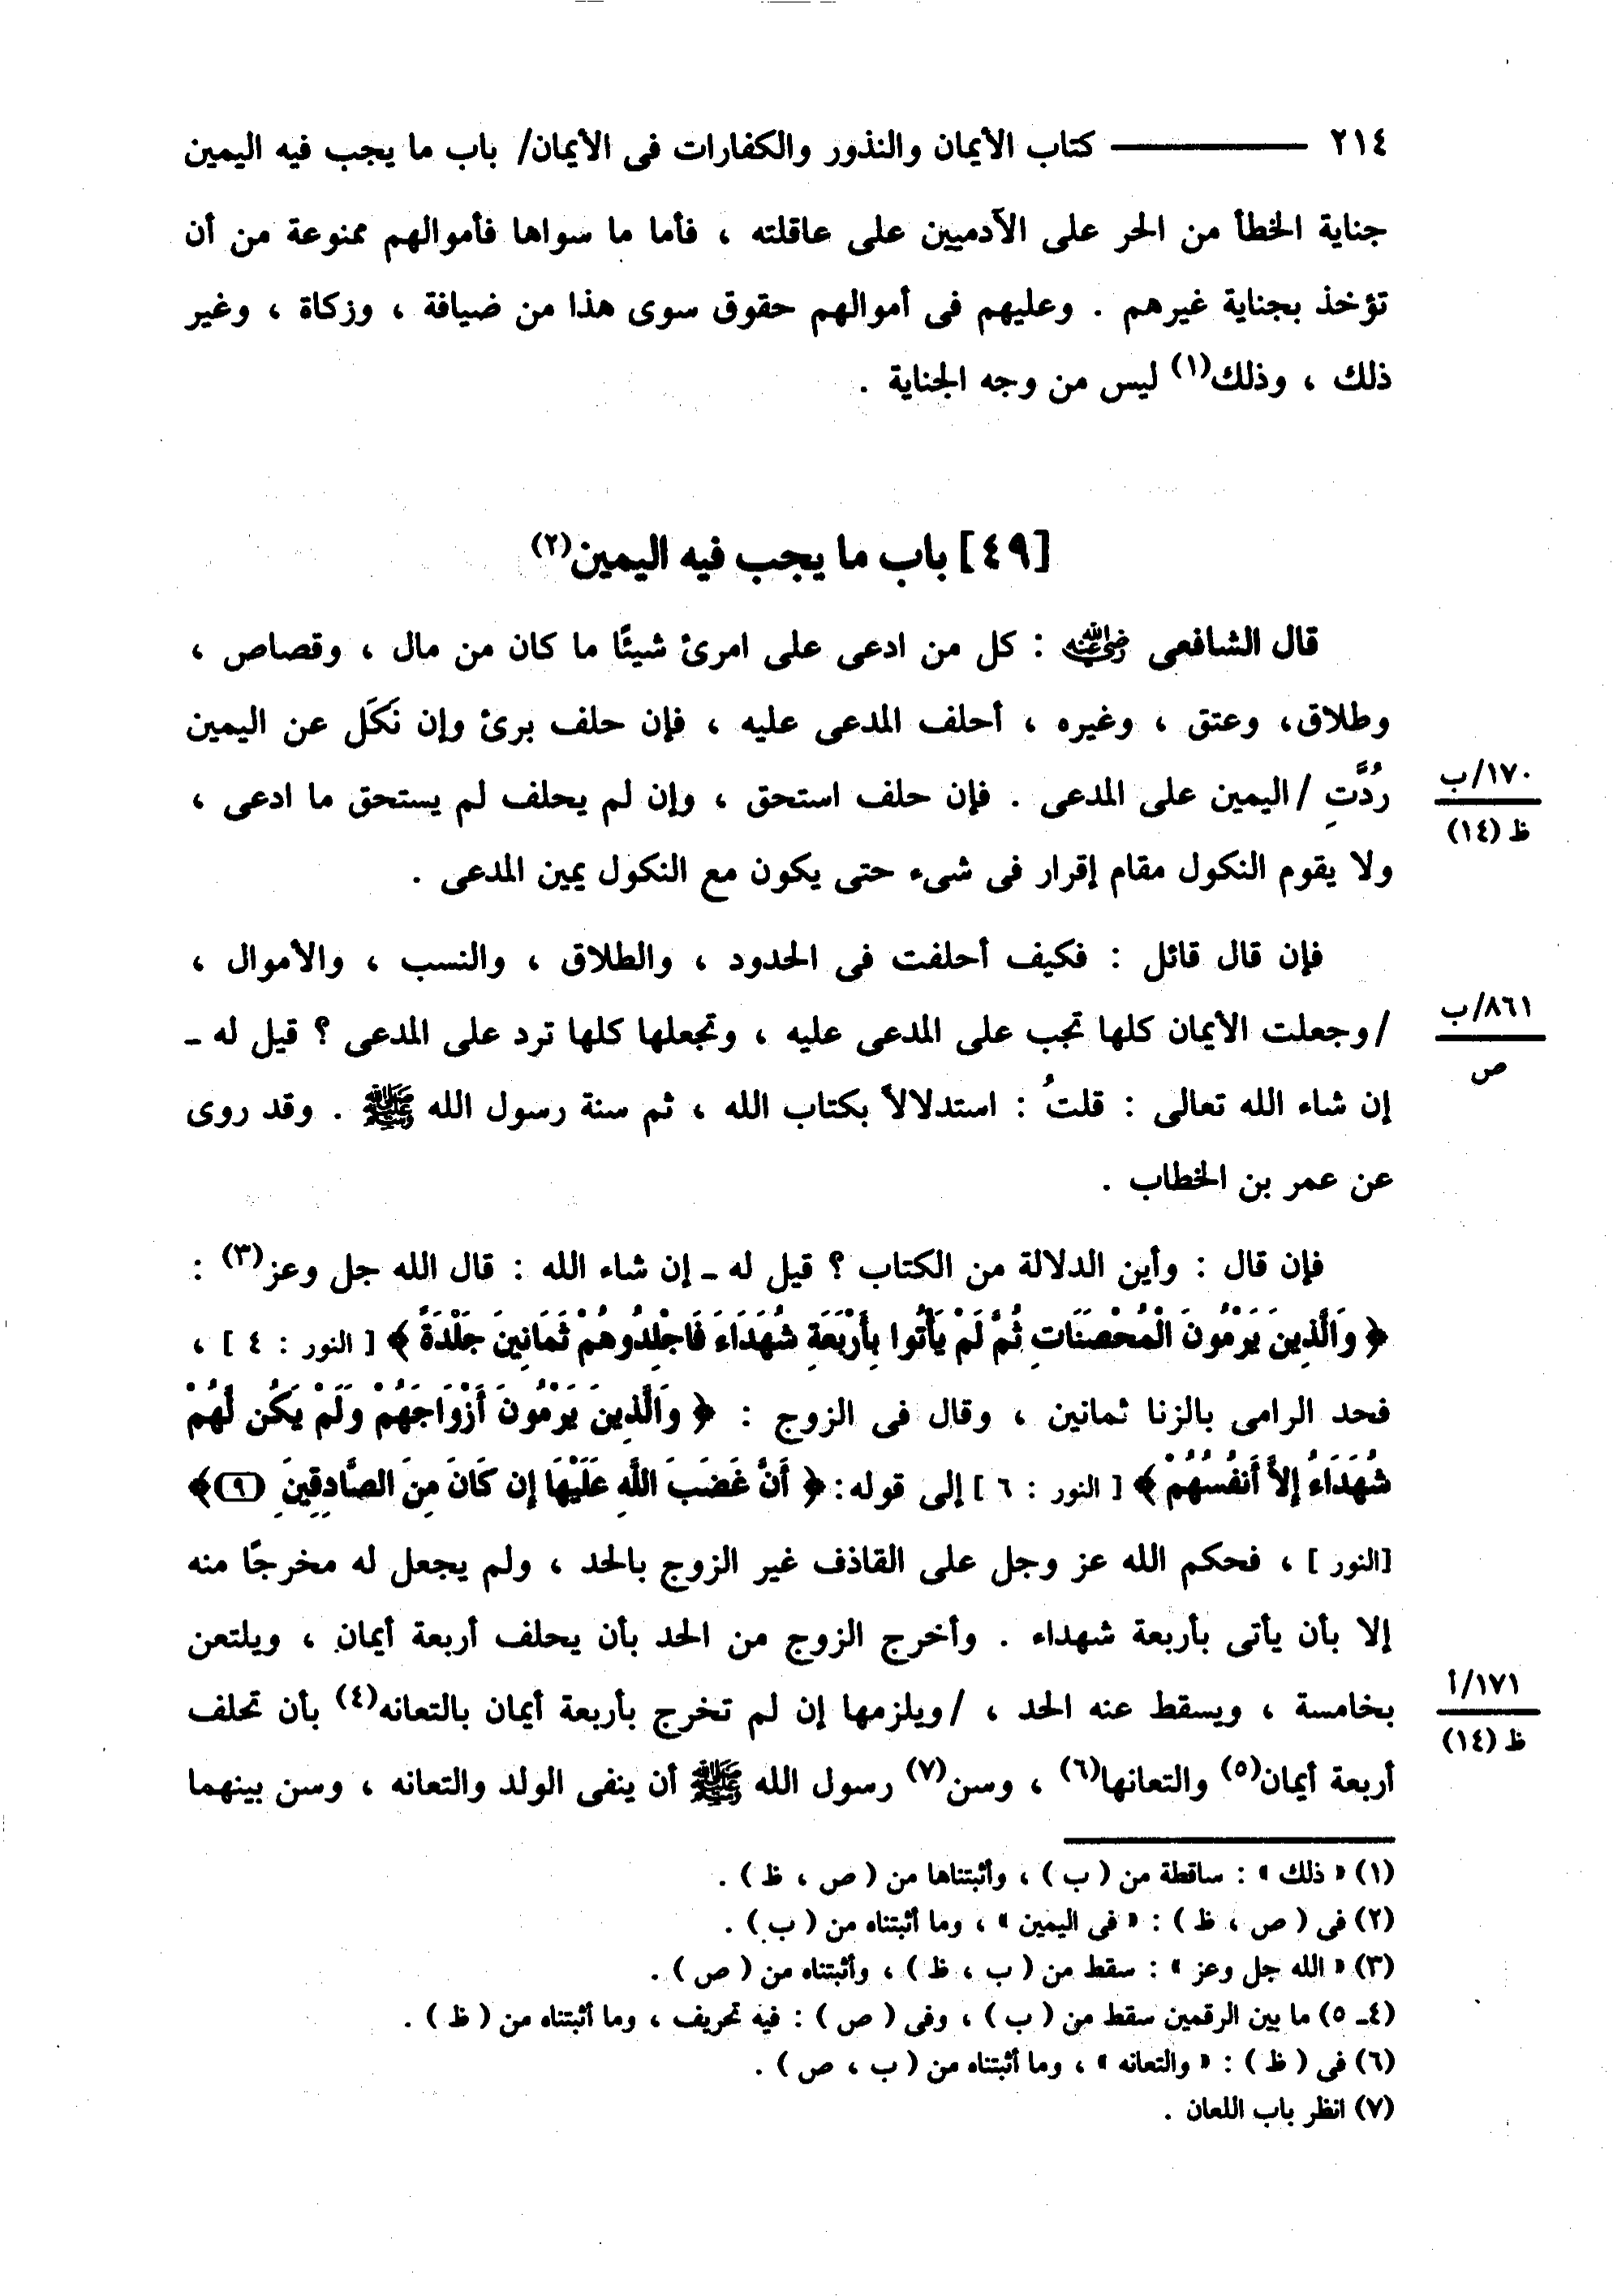 ٢١٤ ــــــــــــ كتاب الأيمان والنذور والكفارات فى الأيمان/ باب ما يجب فيه اليمين
جناية الخطأ من الحر على الآدميين على عاقلته ، فأما ما سواها فأموالهم ممنوعة من أن
تؤخذ بجناية غيرهم . وعليهم فى أموالهم حقوق سوى هذا من ضيافة ، وزكاة ، وغير
ذلك ، وذلك(١) ليس من وجه الجناية .
[٤٩] باب ما يجب فيه اليمين(٢)
قال الشافعى رضي الله عنه : كل من ادعى على امرئ شيئًا ما كان من مال ، وقصاص ،
وطلاق، وعتق ، وغيره ، أحلف المدعى عليه ، فإن حلف برئ وإن نَكَل عن اليمين
رُدَّتِ /اليمين على المدعى . فإن حلف استحق ، وإن لم يحلف لم يستحق ما ادعى ،
١٧٠/ب
ظ (١٤)
ولا يقوم النكول مقام إقرار فى شىء حتى يكون مع النكول يمين المدعى .
فإن قال قائل : فكيف أحلفت فى الحدود ، والطلاق ، والنسب ، والأموال ،
/وجعلت الأيمان كلها تجب على المدعى عليه ، وتجعلها كلها ترد على المدعى ؟ قيل له ـ
٨٦١/ب
ص
إن شاء الله تعالى : قلتُ : استدلالاً بكتاب الله ، ثم سنة رسول الله ﷺ . وقد روى
عن عمر بن الخطاب .
فإن قال : وأين الدلالة من الكتاب ؟ قيل له ـ إن شاء الله : قال الله جل وعز(٣) :
﴿ وَالَّذِينَ يَرْمُونَ الْمُحْصَنَاتِ ثُمَّ لَمْ يَأْتُوا بِأَرْبَعَةِ شُهَدَاءَ فَاجْلِدُوهُمْ ثَمَانِينَ جَلْدَةً ﴾ [ النور : ٤ ] ،
فحد الرامى بالزنا ثمانين ، وقال فى الزوج : ﴿ وَالَّذِينَ يَرْمُونَ أَزْوَاجَهُمْ وَلَمْ يَكُن لَّهُمْ
شُهَدَاءُ إِلاَّ أَنفُسُهُمْ ﴾ [ النور : ٦ ] إلى قوله: ﴿ أَنَّ غَضَبَ اللَّهِ عَلَيْهَا إِن كَانَ مِنَ الصَّادِقِينَ (٩)﴾
[النور ] ، فحكم الله عز وجل على القاذف غير الزوج بالحد ، ولم يجعل له مخرجًا منه
إلا بأن يأتى بأربعة شهداء . وأخرج الزوج من الحد بأن يحلف أربعة أيمان ، ويلتعن
بخامسة ، ويسقط عنه الحد ، /ويلزمها إن لم تخرج بأربعة أيمان بالتعانه(٤) بأن تحلف
١٧١/أ
ظ (١٤)
أربعة أيمان(٥) والتعانها(٦) ، وسن(٧) رسول الله ﷺ أن ينفى الولد والتعانه ، وسن بينهما
(١) « ذلك » : ساقطة من ( ب ) ، وأثبتناها من ( ص ، ظ ) .
(٢) فى ( ص ، ظ ) : « فى اليمين » ، وما أثبتناه من ( ب ) .
(٣) « الله جل وعز » : سقط من ( ب ، ظ ) ، وأثبتناه من ( ص ) .
(٤ـ ٥) ما بين الرقمين سقط من ( ب ) ، وفى ( ص ) : فيه تحريف ، وما أثبتناه من ( ظ ) .
(٦) فى ( ظ ) : « والتعانه » ، وما أثبتناه من ( ب ، ص ) .
(٧) انظر باب اللعان .